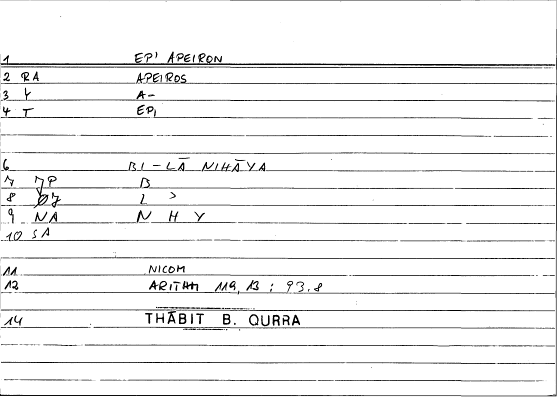 1 EPI APEIRON
2 RA APEIROS
3 Y A-
4 T EPI
6 BI-LĀ NIHĀYA
7 JP B
8 L ʾ
9 NA N H Y
10 SA
11 NICOM
12 ARITHM 119,13 : 93.8
14 THĀBIT B. QURRA